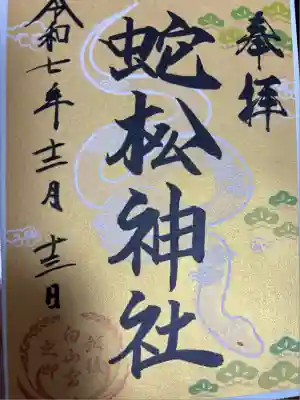 奉拝
蛇松神社
令和七年十二月十三日
白山宮